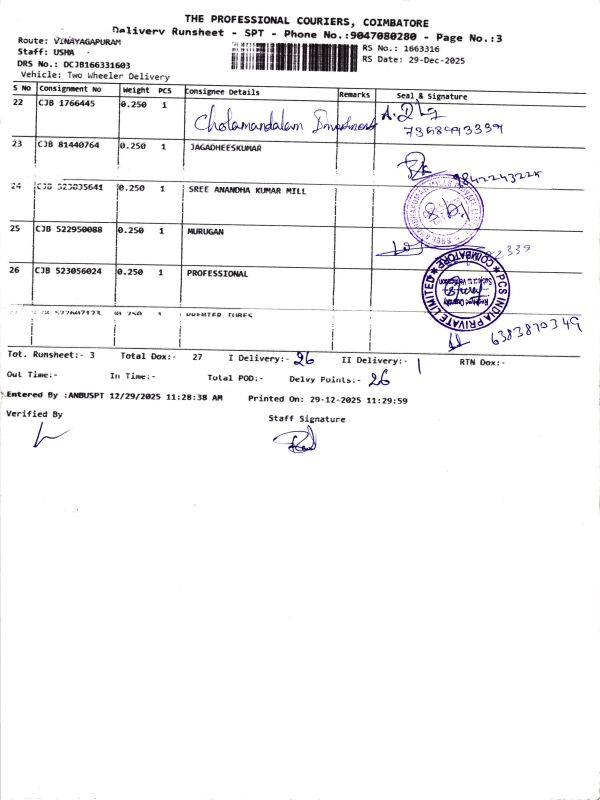 THE PROFESSIONAL COURIERS, COIMBATORE
Delivery Runsheet - SPT - Phone No.:9047080280 - Page No.:3
Route: VINAYAGAPURAM
RS No.: 1663316
Staff: USHA
RS Date: 29-Dec-2025
DRS No.: DCJB166331603
Vehicle: Two Wheeler Delivery
S No Consignment No Weight PCS Consignee Details Remarks Seal & Signature
22 CJB 1766445 0.250 1 Cholamandalam Investment
23 CJB 81440764 0.250 1 JAGADHEESKUMAR
9842243225
24 CJB 523035641 0.250 1 SREE ANANDHA KUMAR MILL
25 CJB 522950088 0.250 1 MURUGAN
26 CJB 523056024 0.250 1 PROFESSIONAL
PCS INDIA PRIVATE LIMITED
COIMBATORE
27 CJB 522607123 0.250 1 PREMIER TUBES
6383870349
Tot. Runsheet:- 3 Total Dox:- 27 I Delivery:- 26 II Delivery:- 1 RTN Dox:-
Out Time:- In Time:- Total POD:- Delvy Points:- 26
Entered By :ANBUSPT 12/29/2025 11:28:38 AM Printed On: 29-12-2025 11:29:59
Verified By
Staff Signature